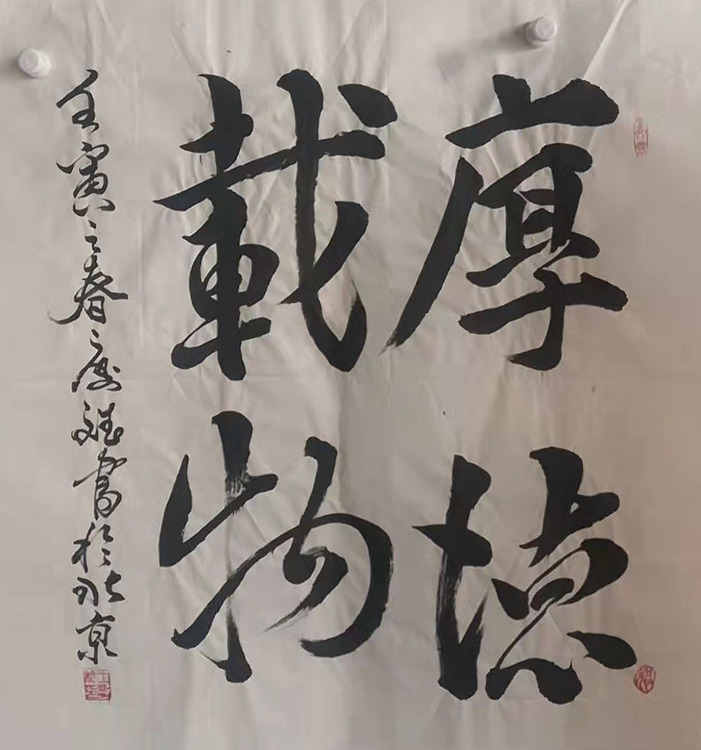 厚德
載物
壬寅之春書於北京